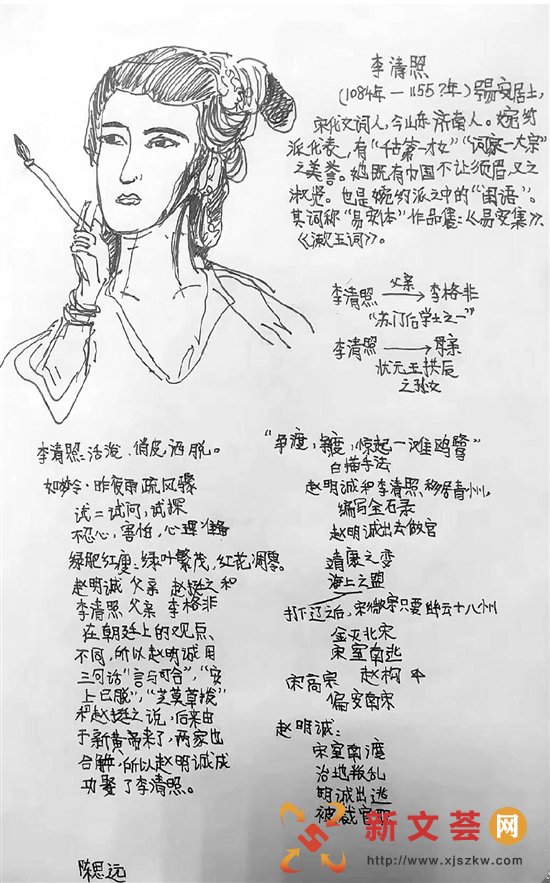 李清照
(1084年—1155?年)易安居士,
宋代女词人,今山东济南人。婉约
派代表,有“千古第一才女”“词家一大宗”
之美誉。她既有巾国不让须眉,又之
淑贤。也是婉约派之中的“闺语”。
其词称“易安体”作品集:《易安集》
《漱玉词》。
李清照 父亲 李格非
“苏门后学士之一”
李清照 母亲
状元王拱辰
之孙女
李清照:活泼、俏皮,洒脱。
如梦令·昨夜雨疏风骤
试=试问,试探
不忍心,害怕,心理准备
绿肥红瘦:绿叶繁茂,红花凋零。
赵明诚 父亲 赵挺之和
李清照 父亲 李格非
在朝廷上的观点、
不同,所以赵明诚用
三句话“言与司合”,“安
上已脱”,“芝芙草拔”
和赵挺之说,后来由
于新黄帝来了,两家也
合解,所以赵明诚成
功娶了李清照。
陈思远
“争渡,争渡,惊起一滩鸥鹭”
白描手法
赵明诚和李清照,移居青州。
编写金石录
赵明诚出去做官
靖康之变
海上之盟
打下辽之后,宋徽宗只要幽云十八州
金灭北宋
宋室南逃
宋高宗 赵构
偏安南宋
赵明诚:
宋室南渡
治地叛乱
明诚出逃
被截官职
新文荟网
http://www.xjszkw.com